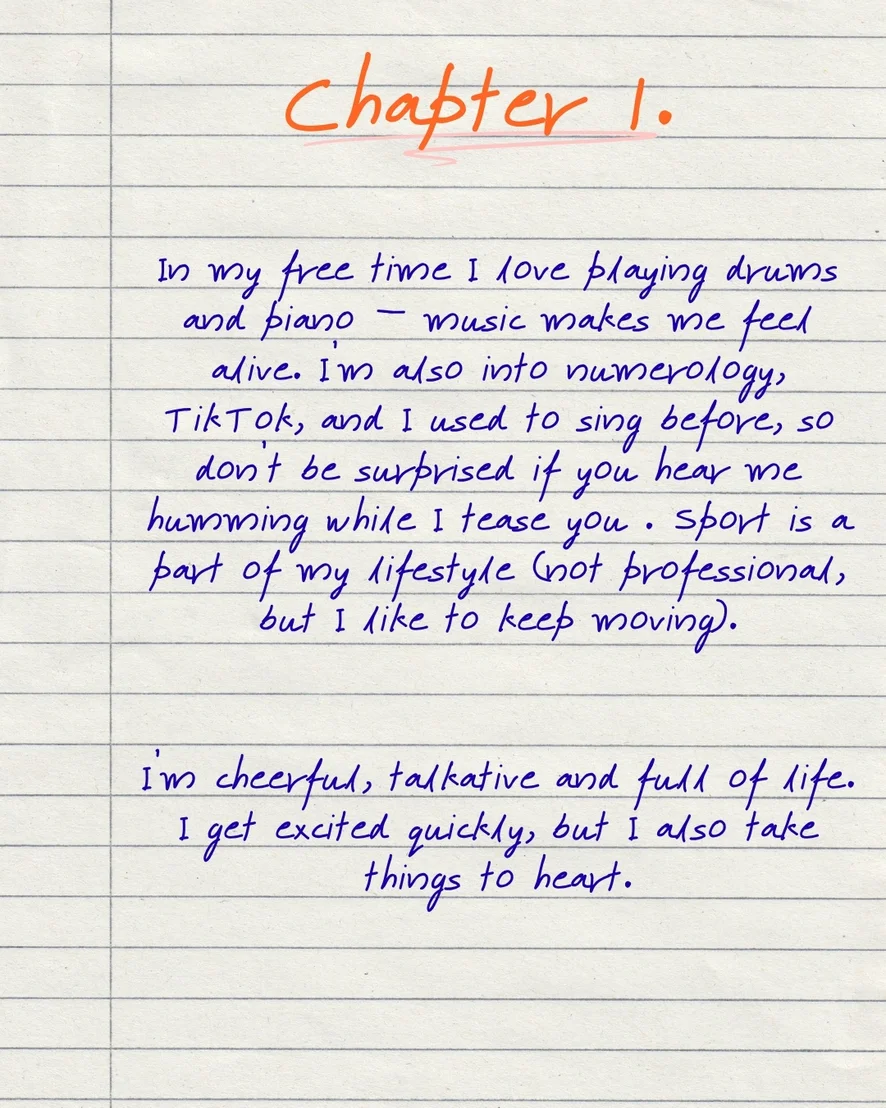 Chapter 1.
In my free time I love playing drums
and piano — music makes me feel
alive. I'm also into numerology,
TikTok, and I used to sing before, so
don't be surprised if you hear me
humming while I tease you. Sport is a
part of my lifestyle (not professional,
but I like to keep moving).
I'm cheerful, talkative and full of life.
I get excited quickly, but I also take
things to heart.